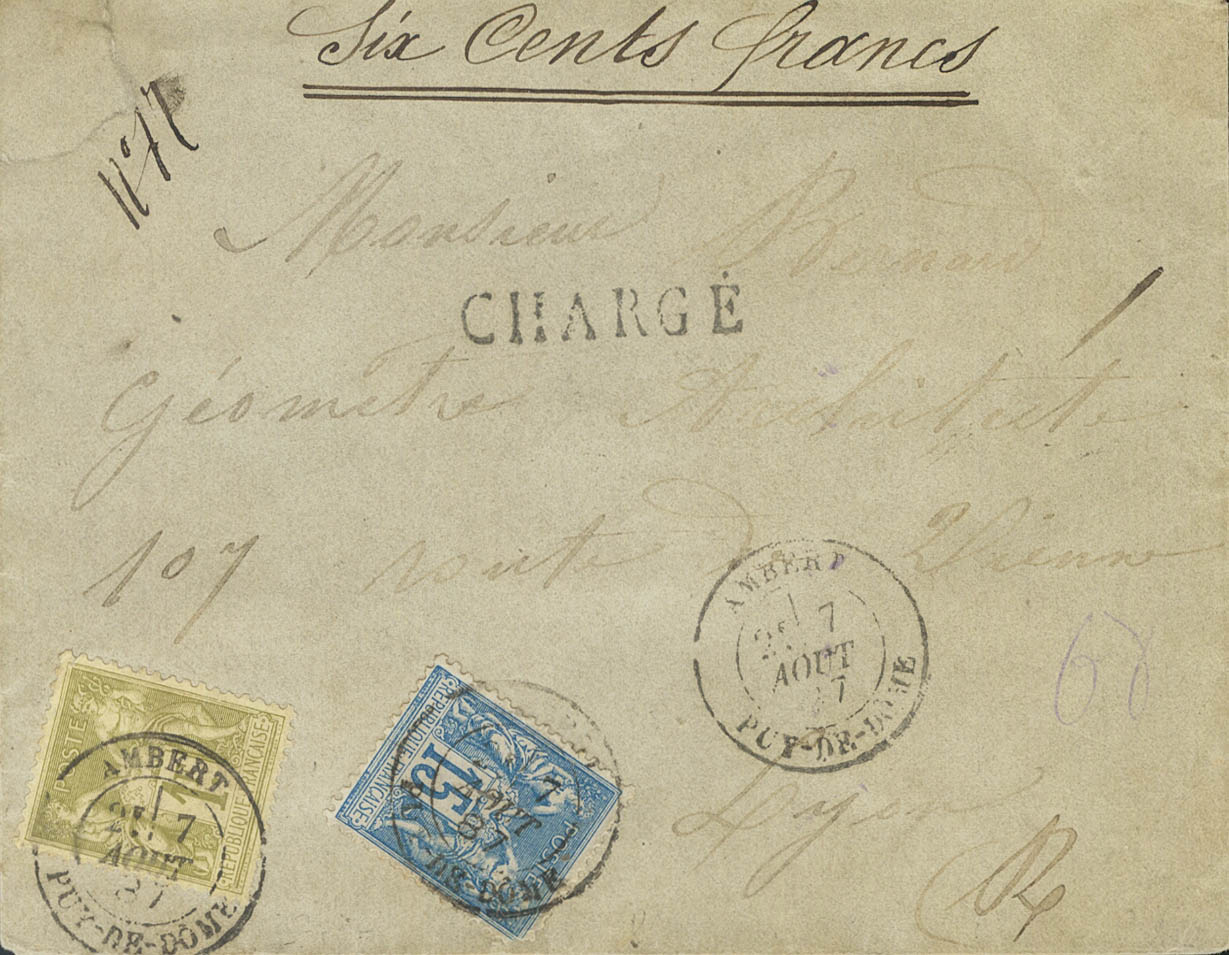 Six Cents francs
CHARGÉ
Monsieur Bernard
Géomètre Architecte
107 route de Vienne
Lyon
AMBERT
7
AOUT
87
PUY-DE-DOME
POSTE
1
REPUBLIQUE FRANÇAISE
AMBERT
7
AOUT
87
PUY-DE-DOME
REPUBLIQUE FRANÇAISE
15
POSTE
7
AOUT
87
-DE-DOME